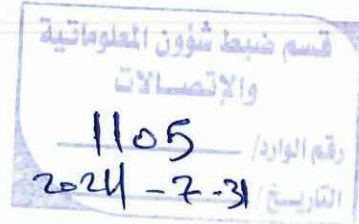 قسم ضبط شؤون المعلوماتية
والإتصالات
رقم الوارد/ 1105
التاريخ/ 2024-7-31